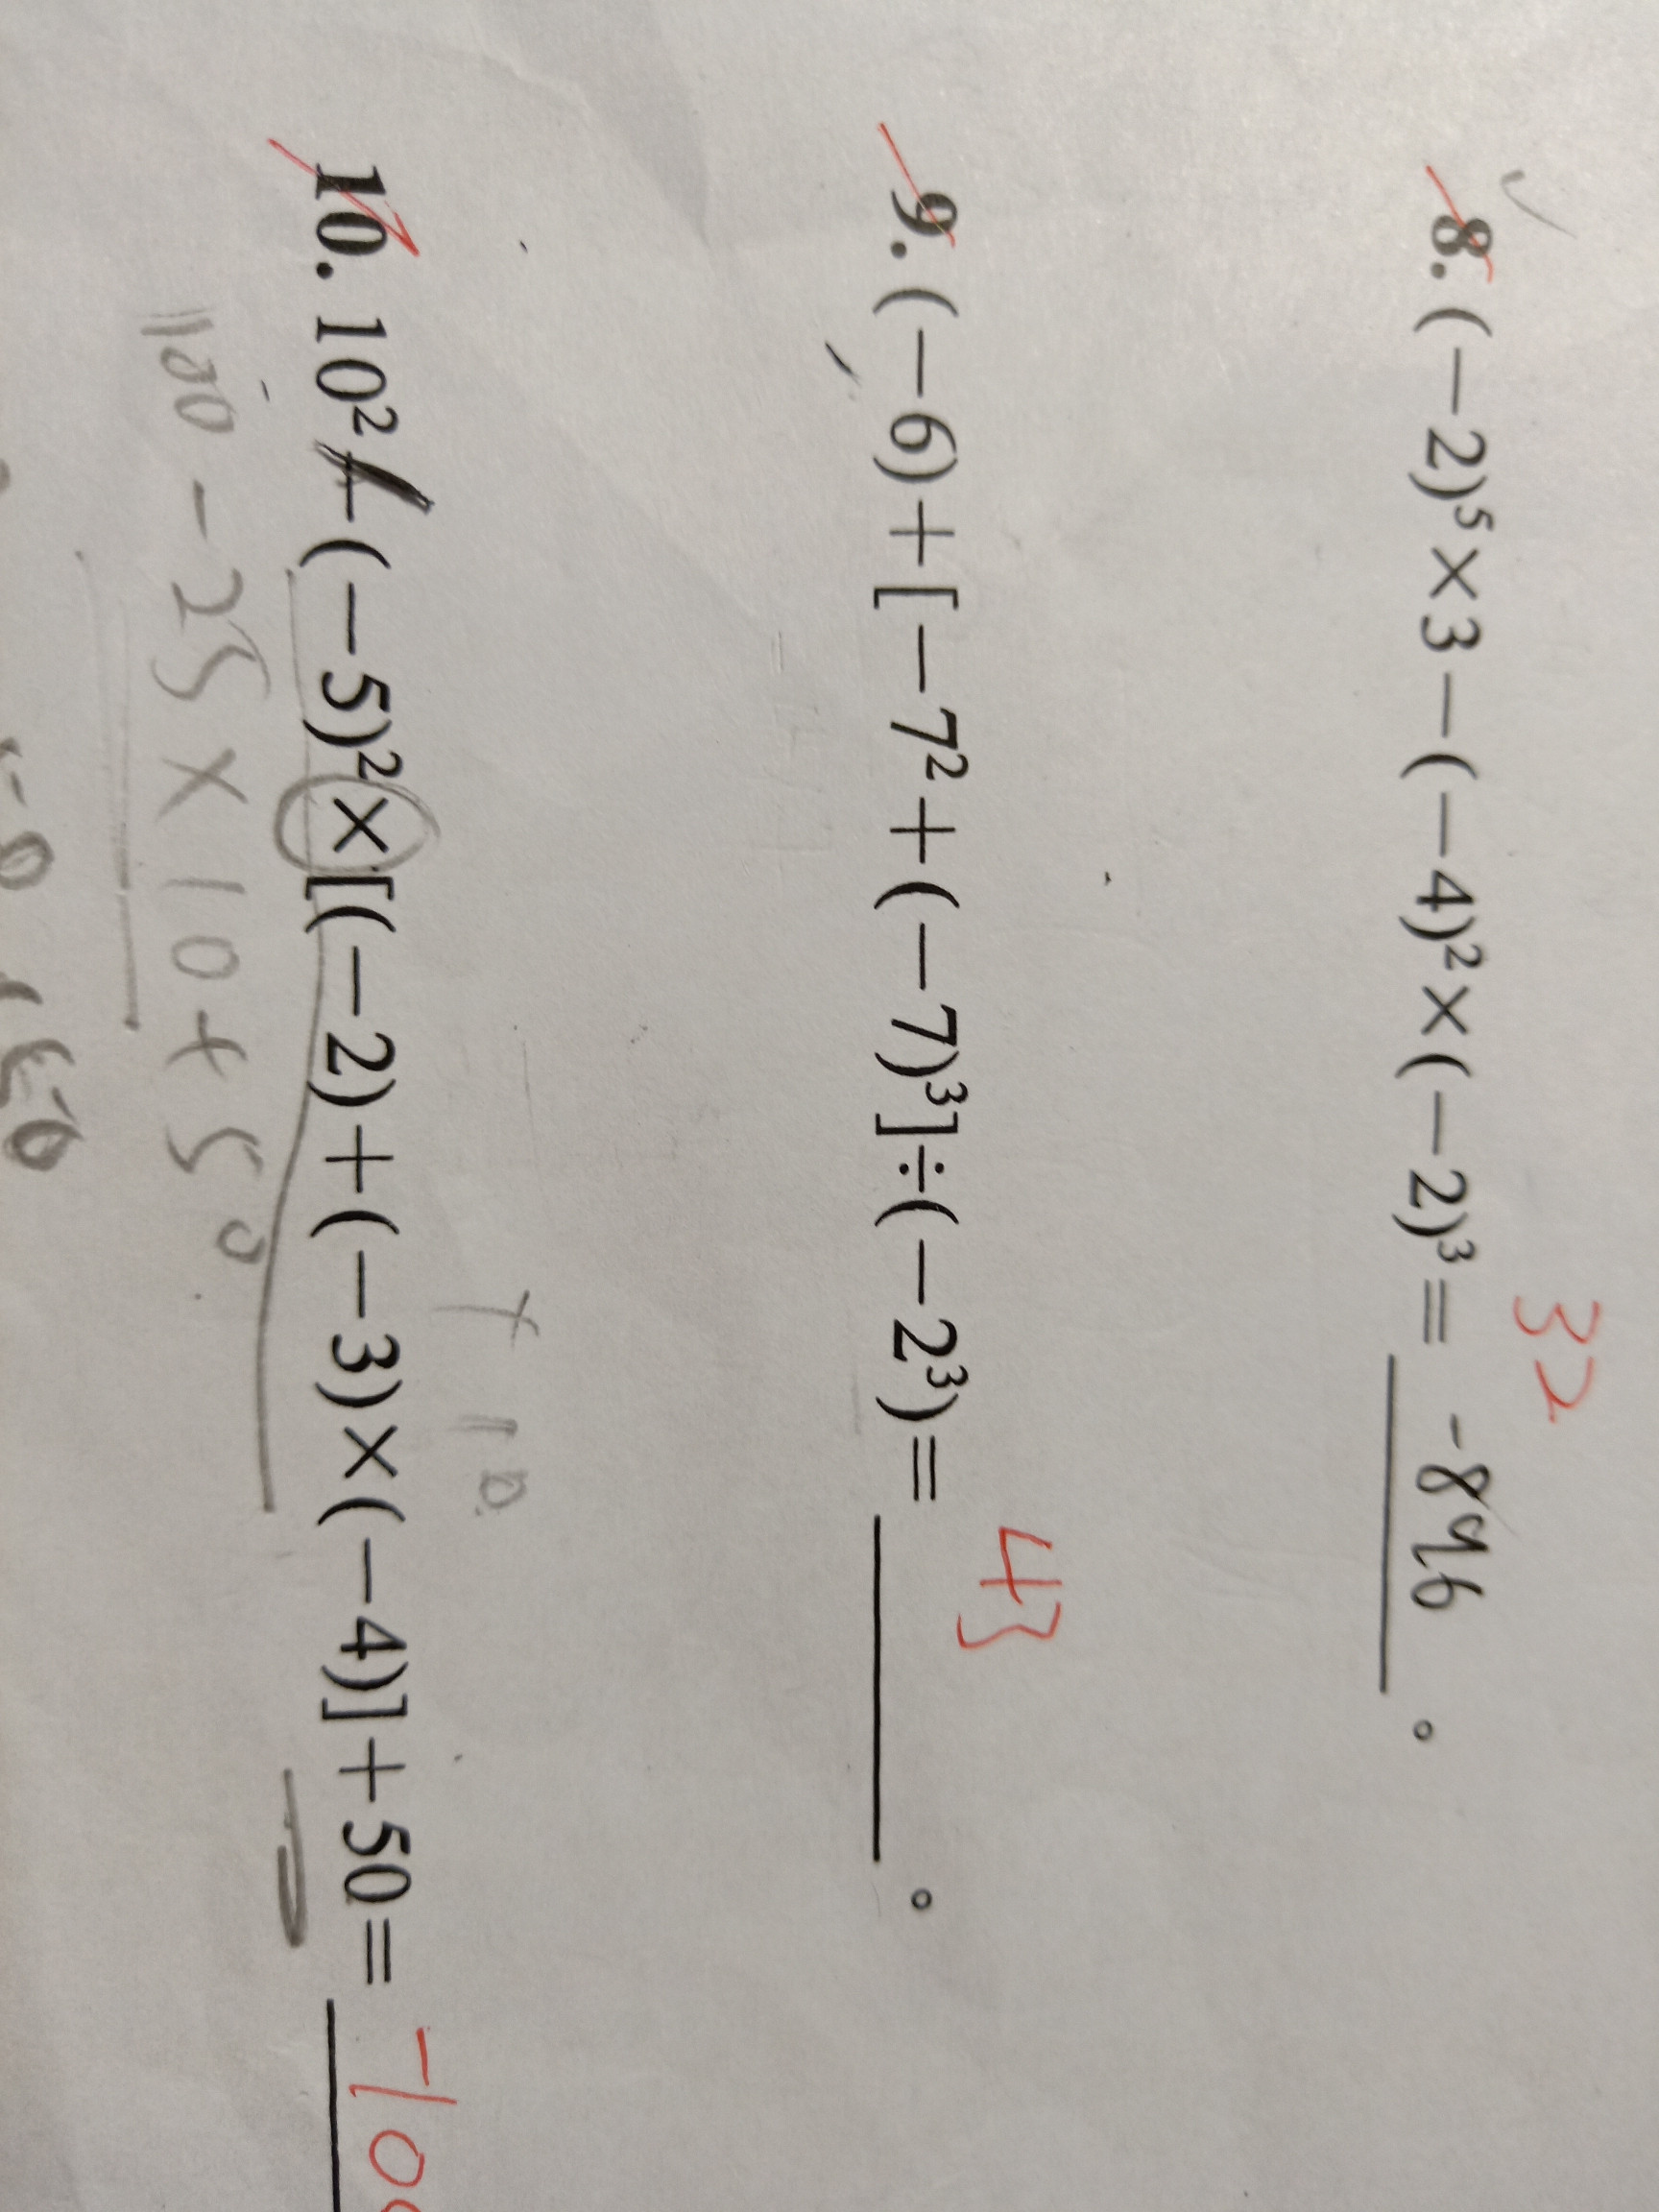 32
8. (−2)⁵×3−(−4)²×(−2)³= -896 。
43
9. (−6)+[−7²+(−7)³]÷(−2³)=______。
+ 10
10. 10²−(−5)²×[(−2)+(−3)×(−4)]+50= -100
100 - 25 × 10 + 50